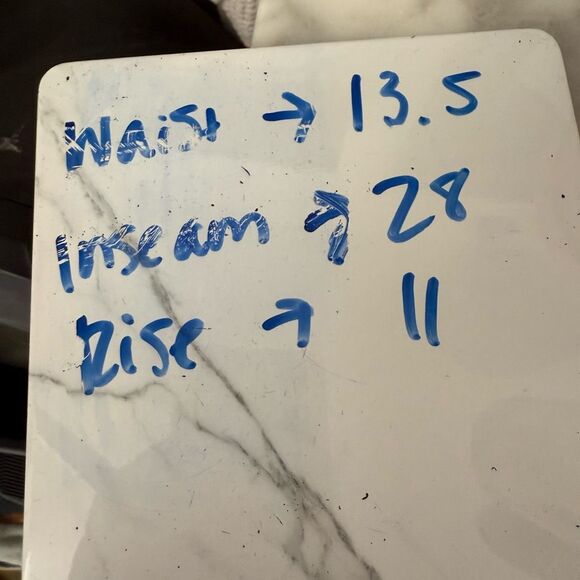 Waist → 13.5
Inseam → 28
Rise → 11